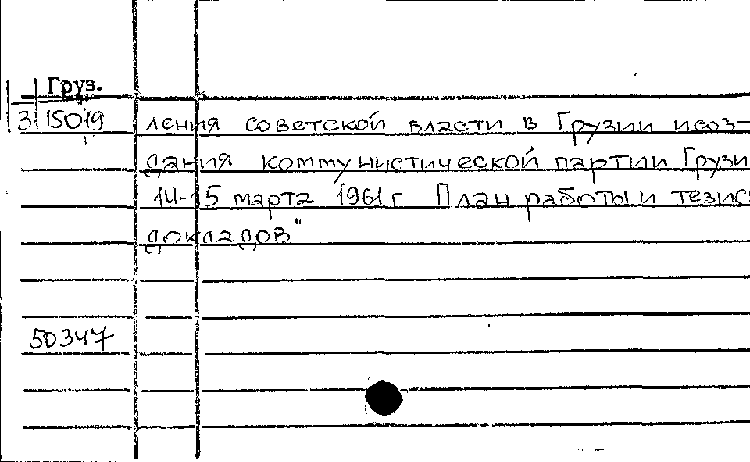 Груз.
3 15019 ления советской власти в Грузии и соз-
дания коммунистической партии Грузи
14-15 марта 1961 г План работы и тезисы
докладов"
50347